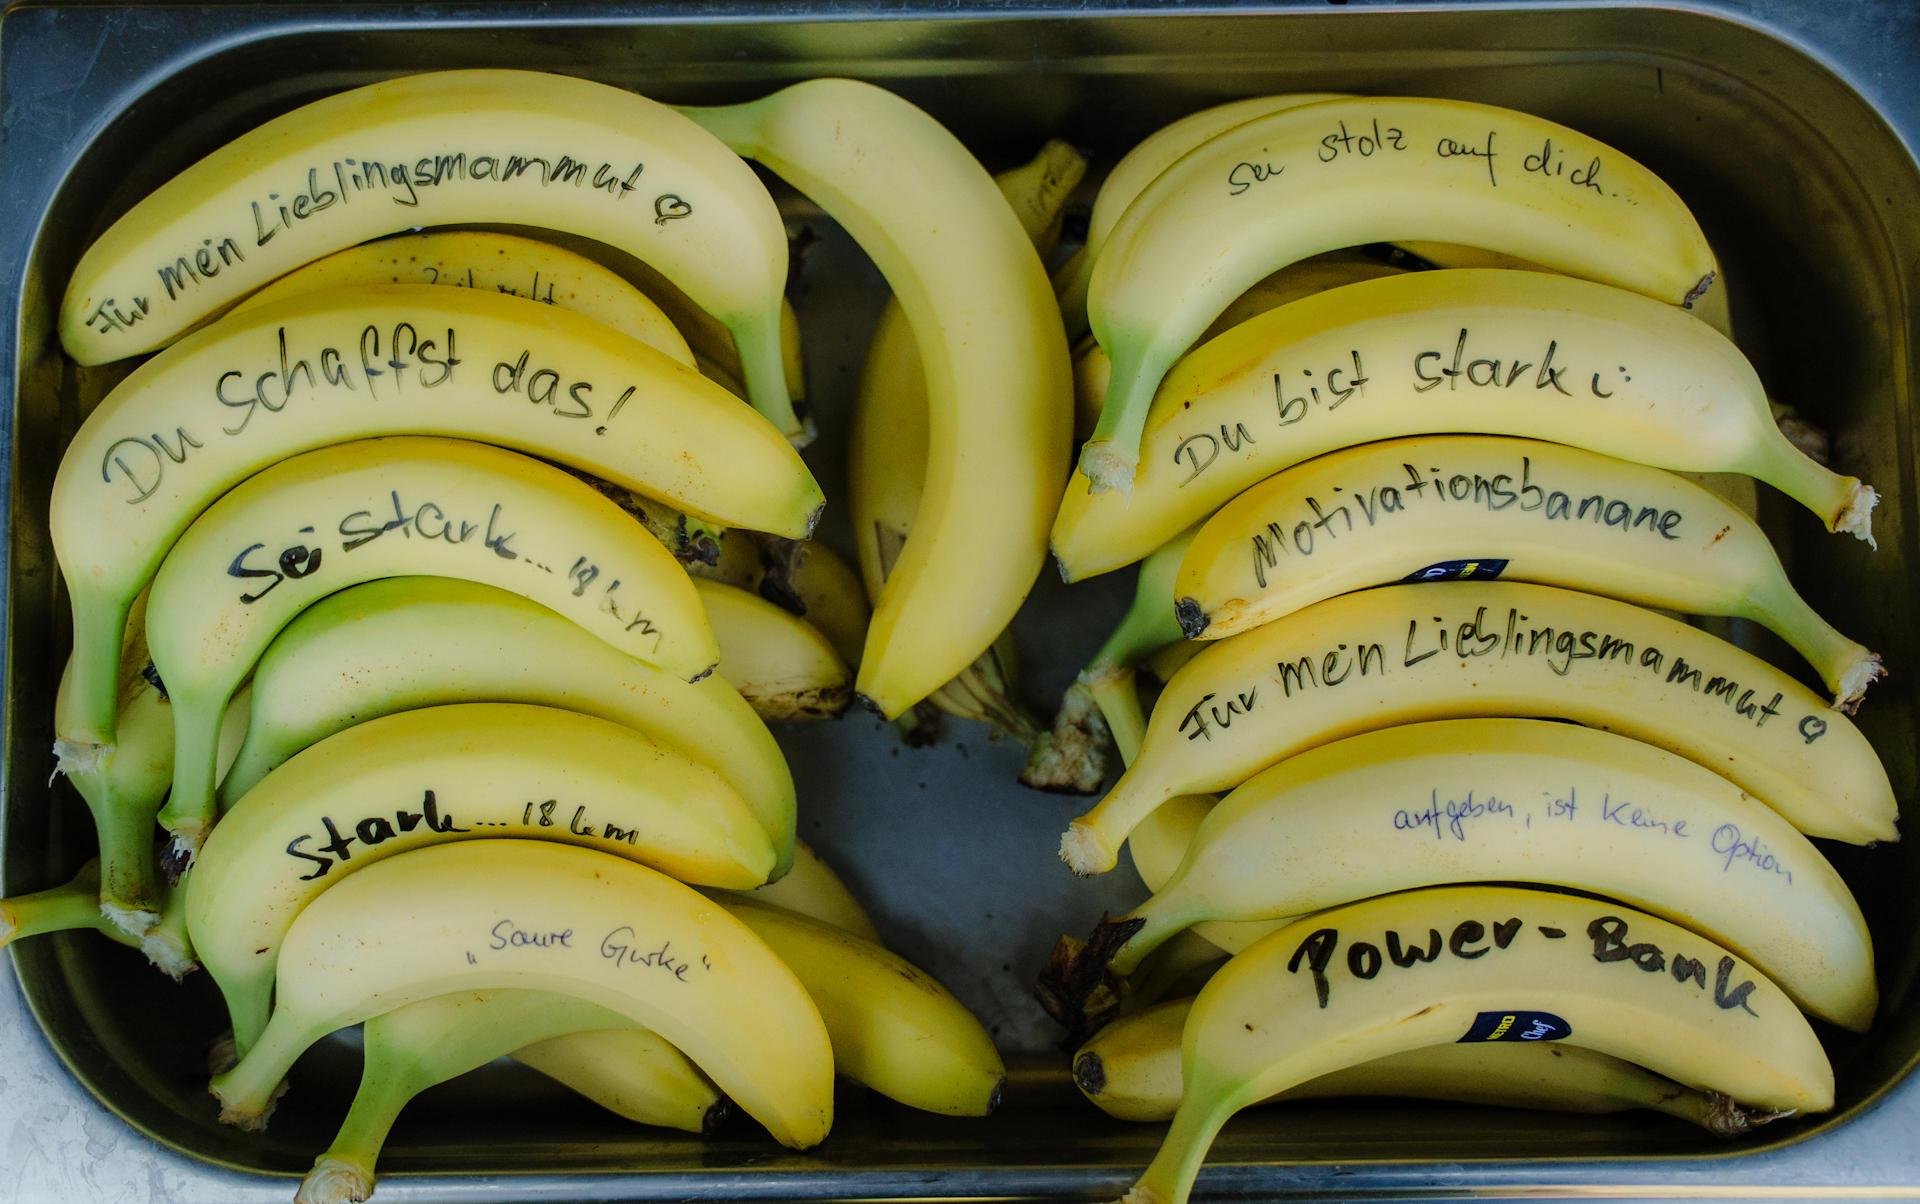 Für mein Lieblingsmammut ♡
Du schaffst das!
Sei stark... 18 km
Stark... 18 km
„Saure Gurke“
sei stolz auf dich...
Du bist stark
Motivationsbanane
Für mein Lieblingsmammut ♡
aufgeben, ist keine Option
Power-Bank
METRO Chef